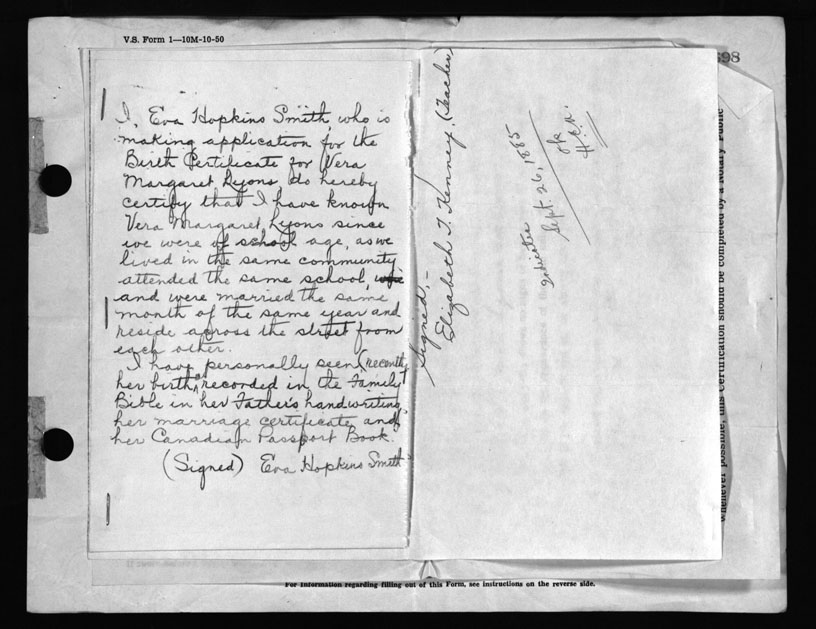 V.S. Form 1—10M-10-50
I, Eva Hopkins Smith, who is
making application for the
Birth Certificate for Vera
Margaret Lyons do hereby
certify that I have known
Vera Margaret Lyons since
we were of school age, as we
lived in the same community,
attended the same school,
and were married the same
month of the same year and
reside across the street from
each other.
I have personally seen (recently)
her birth recorded in the Family
Bible in her Father's handwriting,
her marriage certificate and
her Canadian Passport Book.
(Signed) Eva Hopkins Smith
Signed,-
Elizabeth T. Kenney. (Teacher)
indicates
Sept. 26, 1885
ok
98
Whenever possible, this Certification should be completed by a Notary Public
For information regarding filling out of this Form, see instructions on the reverse side.